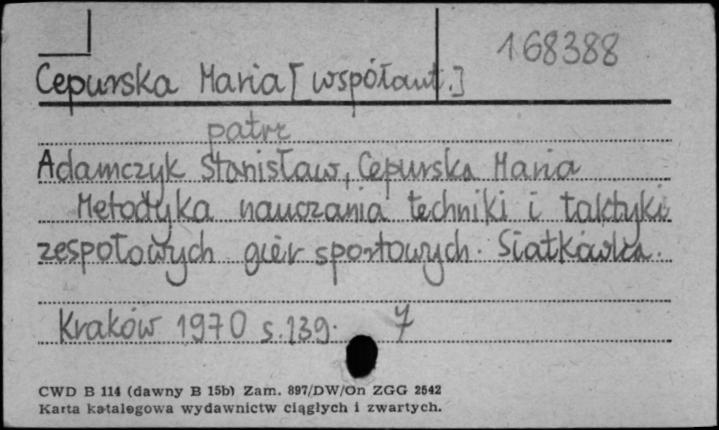 168388
Cepurska Maria [współaut.]
patrz
Adamczyk Stanisław, Cepurska Maria
Metodyka nauczania techniki i taktyki
zespołowych gier sportowych. Siatkówka.
Kraków 1970 s. 139. 7
CWD B 114 (dawny B 15b) Zam. 897/DW/On ZGG 2542
Karta katalogowa wydawnictw ciągłych i zwartych.